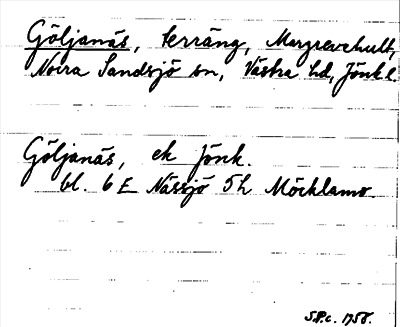 Göljanäs, terräng, Margrevehult,
Norra Sandsjö sn, Västra hd, Jönk l.
Göljanäs, ek Jönk.
bl. 6 E Nässjö 5h Möcklamo.